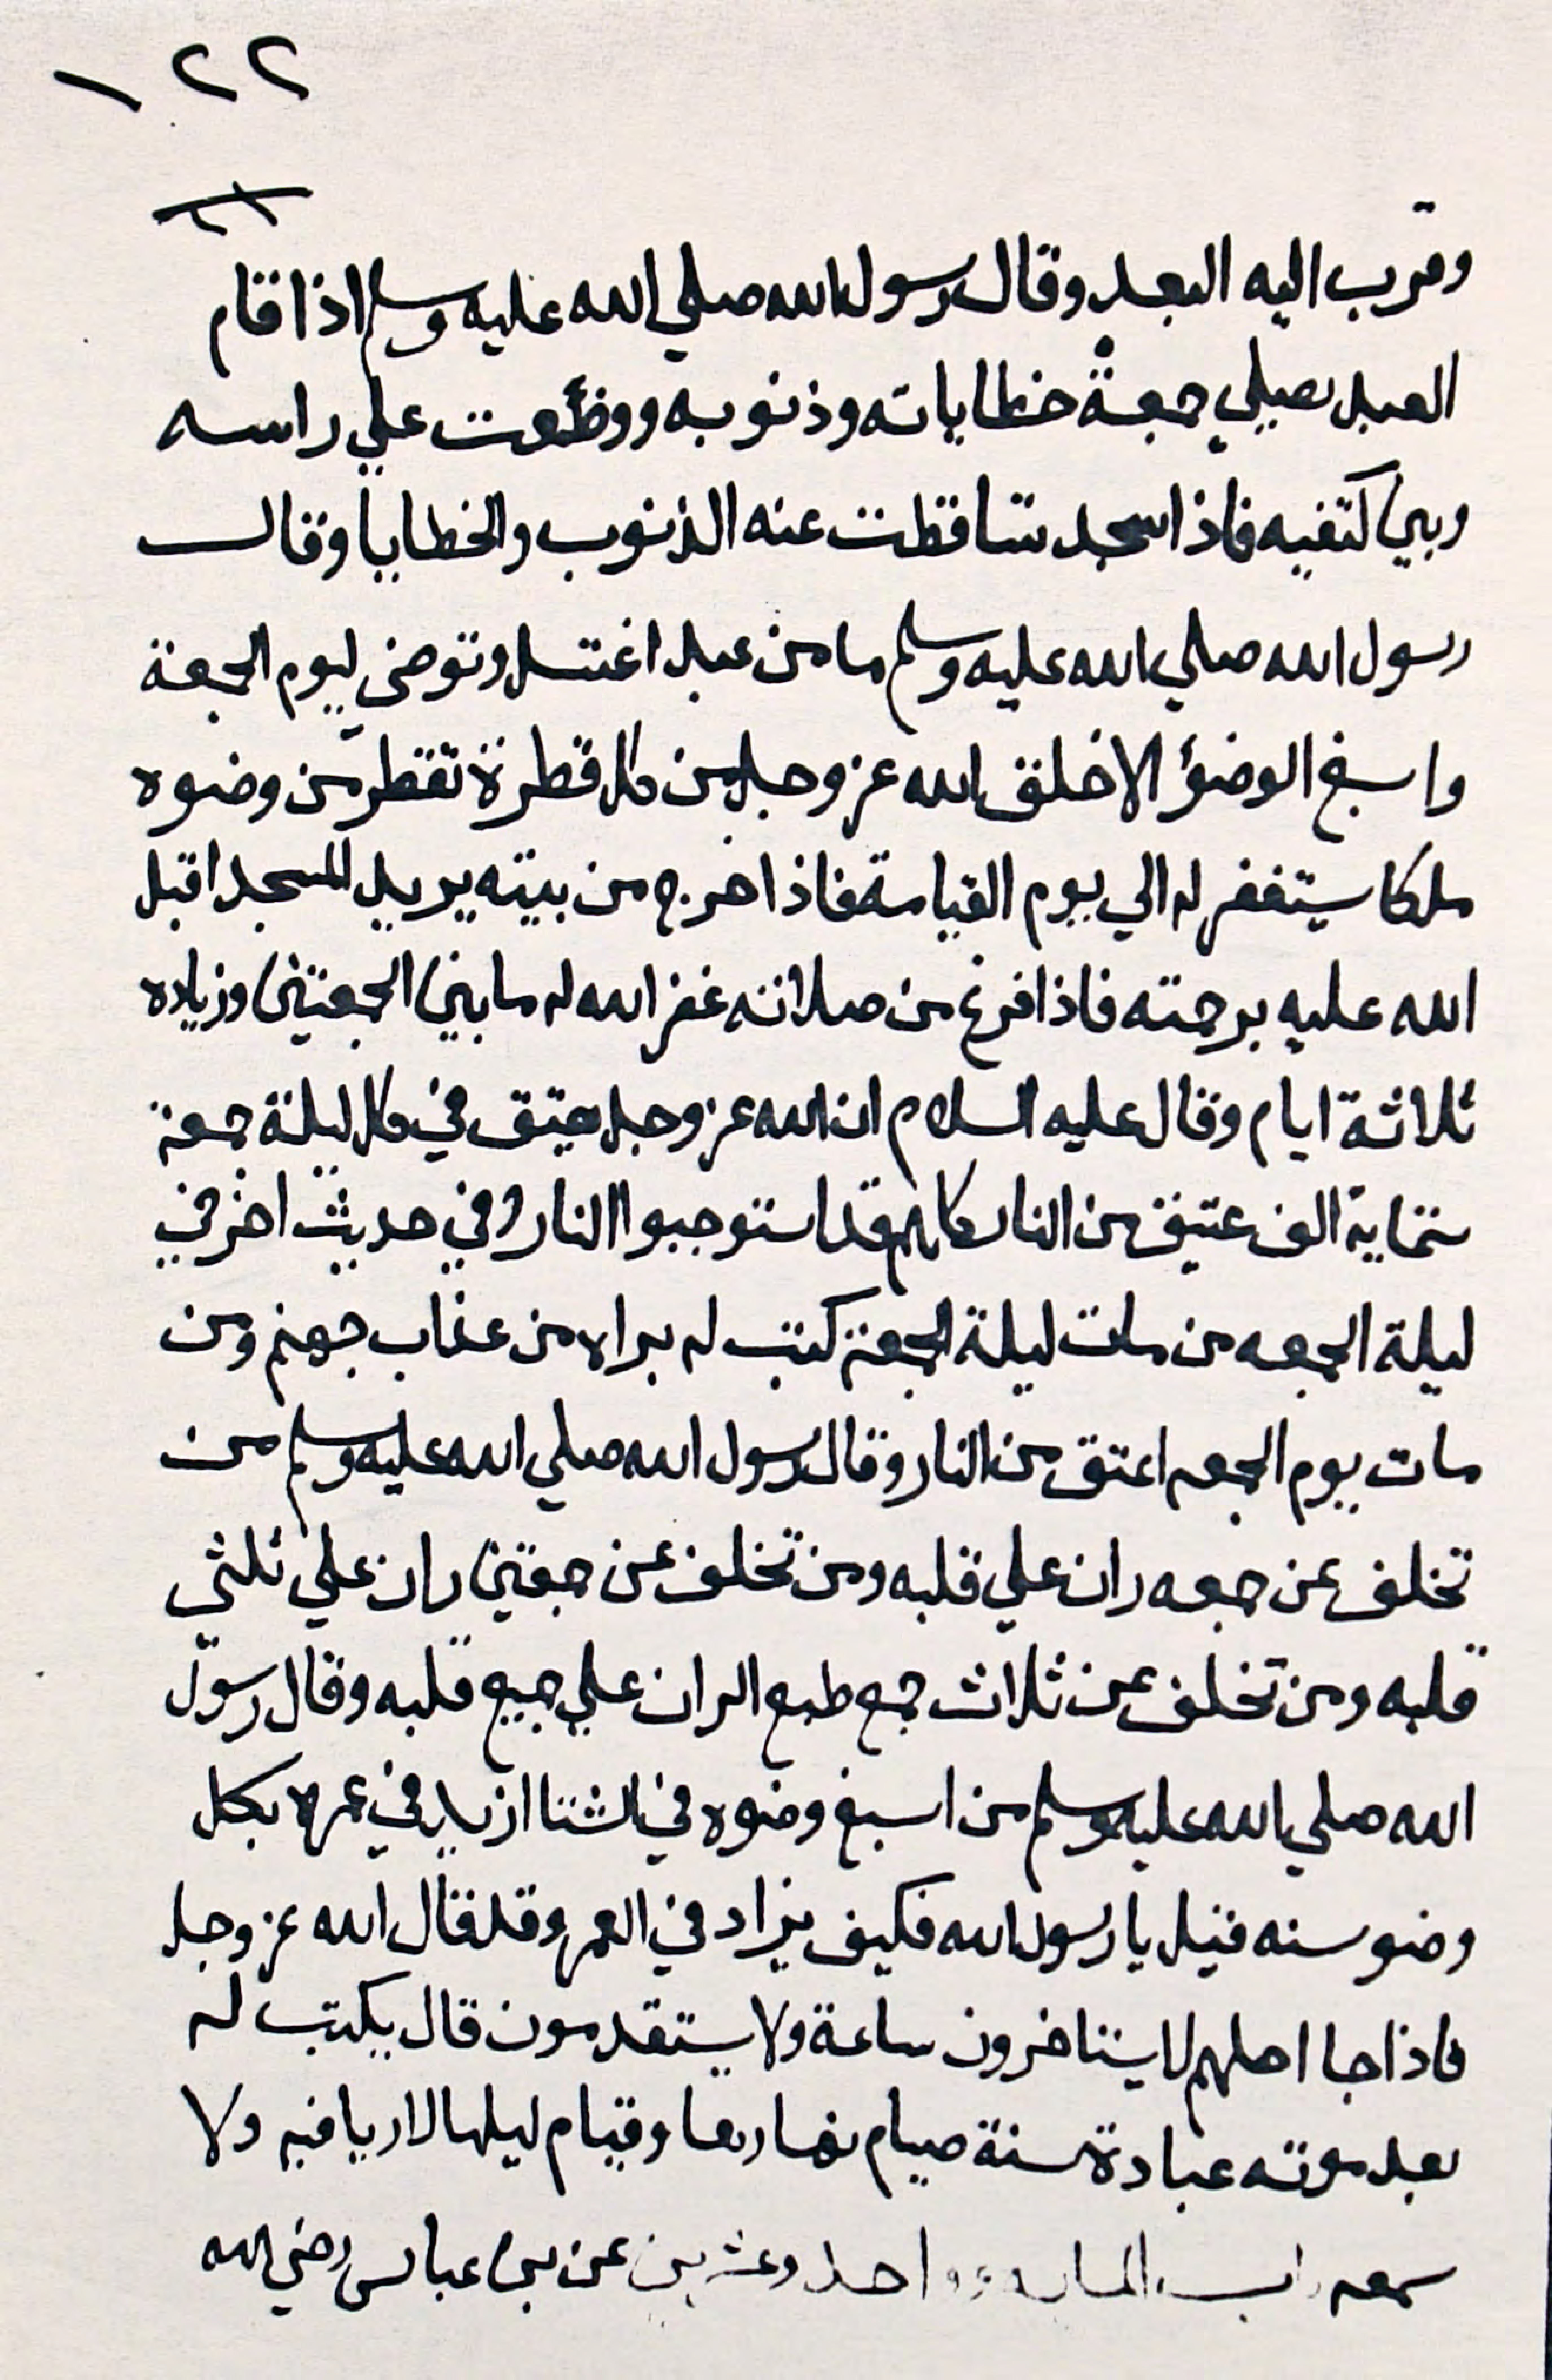 ١٢٢
٢١
وقرب اليه البعيد وقال رسول الله صلي الله عليه وسلم اذا قام
العبد يصلي جمعة خطاياته وذنوبه ووضعت علي راسه
وبين كتفيه فاذا سجد تساقطت عنه الذنوب والخطايا وقال
رسول الله صلي الله عليه وسلم ما من عبد اغتسل وتوضى ليوم الجمعة
واسبغ الوضؤ الا خلق الله عز وجل من كل قطرة تقطر من وضوه
ملكا يستغفر له الي يوم القيامة فاذا خرج من بيته يريد المسجد اقبل
الله عليه برحمته فاذا فرغ من صلاته غفر الله له ما بين الجمعتين وزياده
ثلاثة ايام وقال عليه السلام ان الله عز وجل يعتق في كل ليلة جمعة
ستماية الف عتيق من النار كلهم قد استوجبوا النار وفي حديث اخر في
ليلة الجمعه من مات ليلة الجمعة كتب له براه من عذاب جهنم ومن
مات يوم الجمعه اعتق من النار وقال رسول الله صلي الله عليه وسلم من
تخلف عن جمعه ران علي قلبه ومن تخلف عن جمعتين ران علي ثلثي
قلبه ومن تخلف عن ثلاث جمع طبع الران علي جميع قلبه وقال رسول
الله صلي الله عليه وسلم من اسبغ وضوه في الشتا ازيد في عمره بكل
وضو سنه فقيل يا رسول الله فكيف يزاد في العمر وقد قال الله عز وجل
فاذا جا اجلهم لا يستاخرون ساعة ولا يستقدمون قال يكتب له
بعد موته عبادة سنة صيام نهارها وقيام ليلها لا ريا فيه ولا
سمعه واحد وعشرين عن بن عباس رضي الله